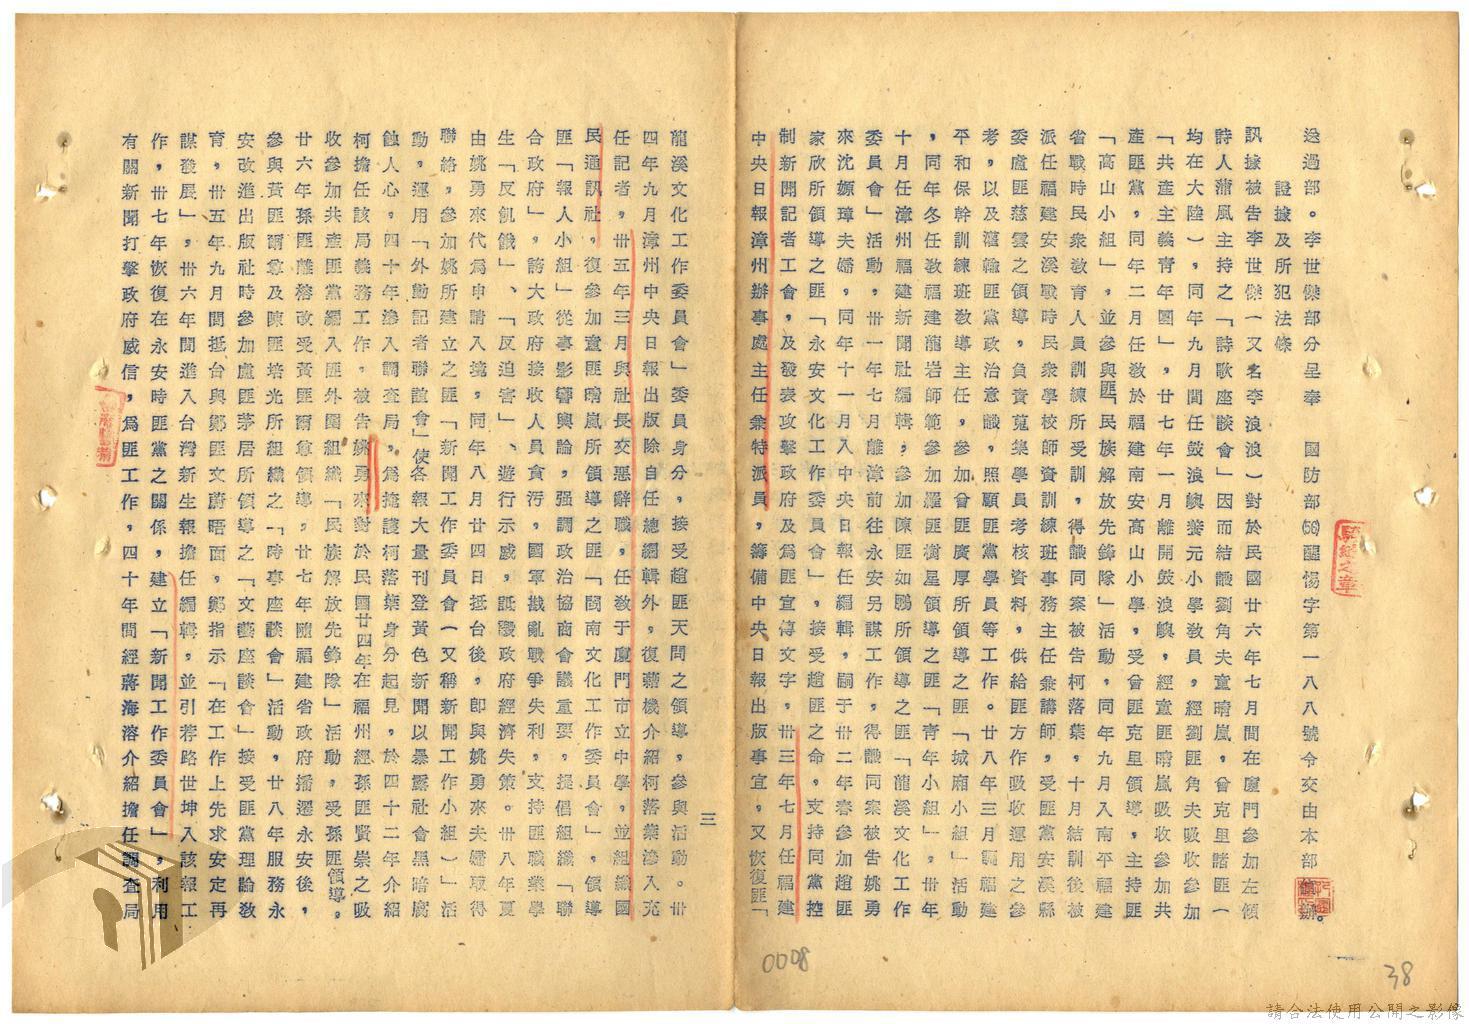 送過部。李世傑部分呈奉　國防部(56)醒惕字第一八八號令交由本部偵辦。
證據及所犯法條
訊據被告李世傑（又名李浪浪）對於民國廿六年七月間在廈門參加左傾
詩人蒲風主持之「詩歌座談會」因而結識劉角夫童晴嵐，曾克里諸匪（
均在大陸），同年九月間任鼓浪嶼養元小學教員，經劉匪角夫吸收參加
「共產主義青年團」，廿七年一月離開鼓浪嶼，經童匪晴嵐吸收參加共
產匪黨，同年二月任教於福建南安高山小學，受曾匪克里領導，主持匪
「高山小組」，並參與匪「民族解放先鋒隊」活動，同年九月入南平福建
省戰時民衆教育人員訓練所受訓，得識同案被告柯落葉，十月結訓後被
派任福建安溪戰時民衆學校師資訓練班事務主任兼講師，受匪黨安溪縣
委盧匪慈雲之領導，負責蒐集學員考核資料，供給匪方作吸收運用之參
考，以及灌輸匪黨政治意識，照顧匪黨學員等工作。廿八年三月調福建
平和保幹訓練班教導主任，參加曾匪廣厚所領導之匪「城廂小組」活動
，同年冬任教福建龍岩師範參加羅匪樹星領導之匪「青年小組」，卅年
十月任漳州福建新聞社編輯，參加陳匪如鵬所領導之匪「龍溪文化工作
委員會」活動，卅一年七月離漳前往永安另謀工作，得識同案被告姚勇
來沈嫄璋夫婦，同年十一月入中央日報任編輯，嗣于卅二年春參加趙匪
家欣所領導之匪「永安文化工作委員會」，接受趙匪之命，支持同黨控
制新聞記者工會，及發表攻擊政府及爲匪宣傳文字，卅三年七月任福建
中央日報漳州辦事處主任兼特派員，籌備中央日報出版事宜，又恢復匪「
龍溪文化工作委員會」委員身分，接受趙匪天問之領導，參與活動。卅
四年九月漳州中央日報出版除自任總編輯外，復藉機介紹柯落葉滲入充
任記者，卅五年三月與社長交惡辭職，任教于廈門市立中學，並組織國
民通訊社，復參加童匪晴嵐所領導之匪「閩南文化工作委員會」，領導
匪「報人小組」從事影響輿論，强調政治協商會議重要，提倡組織「聯
合政府」，誇大政府接收人員貪污，國軍戡亂戰爭失利，支持匪職業學
生「反飢餓」、「反迫害」、遊行示威，詆毀政府經濟失策。卅八年夏
由姚勇來代爲申請入境，同年八月廿四日抵台後，卽與姚勇來夫婦取得
聯絡，參加姚所建立之匪「新聞工作委員會（又稱新聞工作小組）」活
動，運用「外勤記者聯誼會」使各報大量刊登黃色新聞以暴露社會黑暗腐
蝕人心，四十年滲入調查局，爲掩護柯落葉身分起見，於四十二年介紹
柯擔任該局義務工作。被告姚勇來對於民國廿四年在福州經孫匪賢崇之吸
收參加共產匪黨編入匪外圍組織「民族解放先鋒隊」活動，受孫匪領導。
廿六年孫匪離溶改受黃匪爾尊領導，廿七年隨福建省政府播遷永安後，
參與黃匪爾尊及陳匪培光所組織之「時事座談會」活動，廿八年服務永
安改進出版社時參加盧匪茅居所領導之「文藝座談會」接受匪黨理論敎
育，卅五年九月間抵台與鄭匪文蔚晤面，鄭指示「在工作上先求安定再
謀發展」，卅六年間進入台灣新生報擔任編輯，並引荐路世坤入該報工
作，卅七年恢復在永安時匪黨之關係，建立「新聞工作委員會」，利用
有關新聞打擊政府威信，爲匪工作，四十年間經蔣海溶介紹擔任調查局
三
騎縫之章
0008
38
請合法使用公開之影像